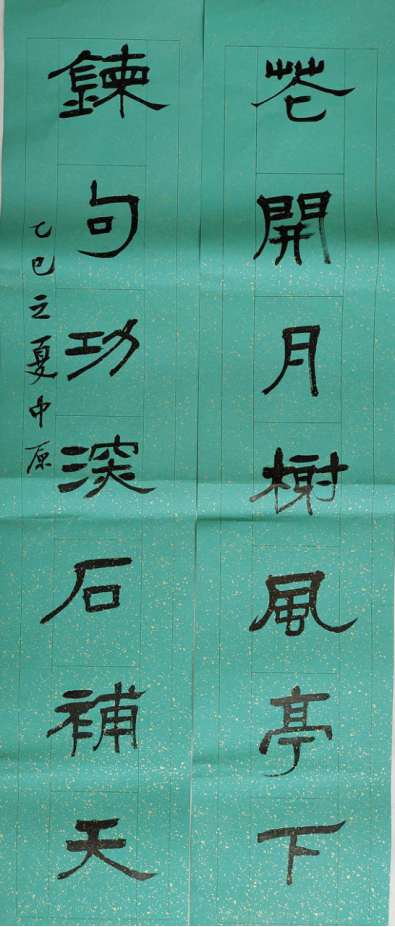 花開月榭風亭下
鍊句功深石補天
乙巳之夏中原